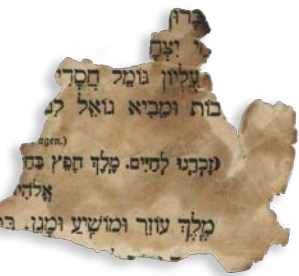 בָּרוּ
יִצְחָ
עֶלְיוֹן גּוֹמֵל חֲסָדִי
בוֹת וּמֵבִיא גוֹאֵל לִבְ
agem.)
זָכְרֵנוּ לְחַיִּים. מֶלֶךְ חָפֵץ בַּחַ
אֱלֹהִי
מֶלֶךְ עוֹזֵר וּמוֹשִׁיעַ וּמָגֵן. בָּ